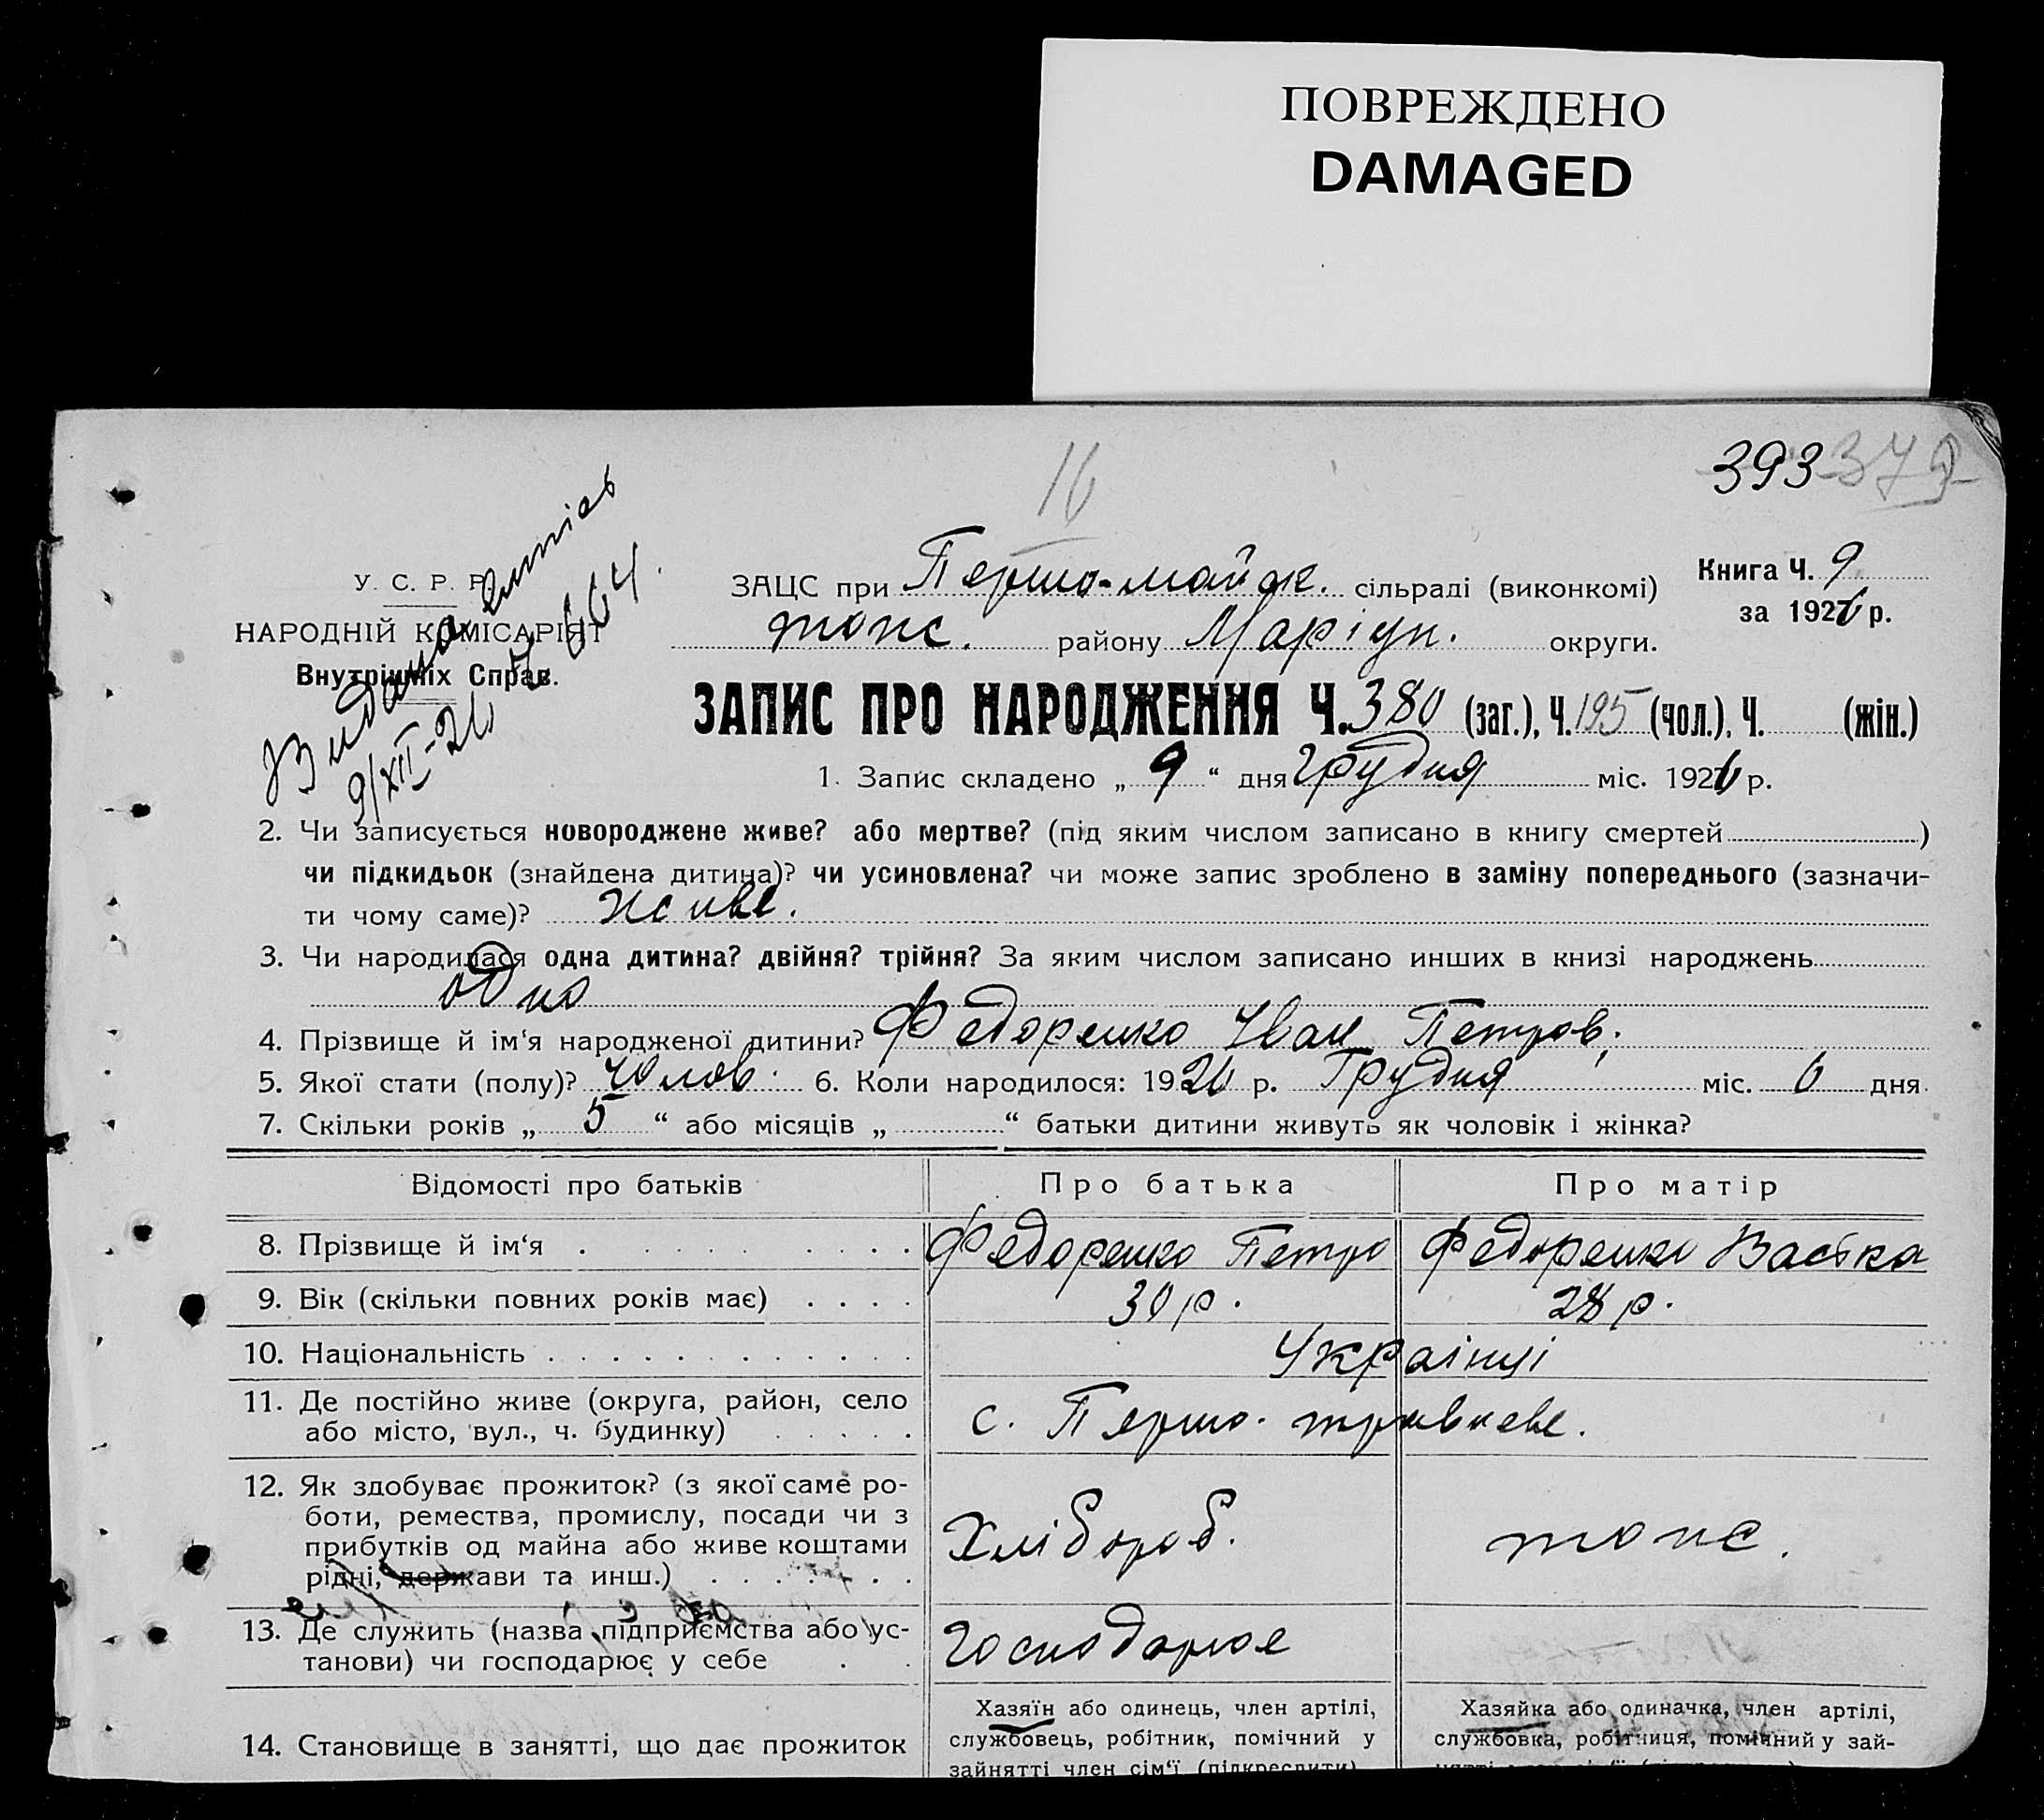 ПОВРЕЖДЕНО
DAMAGED
16
393 379
Видана
9/XII-26 664.
У. С. Р. Р.
НАРОДНІЙ КОМІСАРІЯТ
Внутрішніх Справ.
ЗАЦС при Першо-майск. сільраді (виконкомі)
топс. району Маріуп. округи.
Книга Ч. 9
за 1926 р.
ЗАПИС ПРО НАРОДЖЕННЯ Ч. 380 (заг.), Ч. 195 (чол.), Ч. (жін.)
1. Запис складено „ 9 “ дня Грудня міс. 1926 р.
2. Чи записується новороджене живе? або мертве? (під яким числом записано в книгу смертей )
чи підкидьок (знайдена дитина)? чи усиновлена? чи може запис зроблено в заміну попереднього (зазначи-
ти чому саме)? живе.
3. Чи народилася одна дитина? двійня? трійня? За яким числом записано инших в книзі народжень
одно
4. Прізвище й ім‘я народженої дитини? Федоренко Іван Петров.
5. Якої стати (полу)? Чолов. 6. Коли народилося: 1926 р. Грудня міс. 6 дня
7. Скільки років „ 5 “ або місяців „ “ батьки дитини живуть як чоловік і жінка?
Відомості про батьків Про батька Про матір
8. Прізвище й ім‘я Федоренко Петро Федоренко Вастка
9. Вік (скільки повних років має) 30 р. 28 р.
10. Національність Українці
11. Де постійно живе (округа, район, село
або місто, вул., ч. будинку) с. Першо-травневе.
12. Як здобуває прожиток? (з якої саме ро-
боти, ремества, промислу, посади чи з
прибутків од майна або живе коштами
рідні, держави та инш.) Хлібороб. топс.
13. Де служить (назва підприємства або ус-
танови) чи господарює у себе Господарює
14. Становище в занятті, що дає прожиток
Хазяїн або одинець, член артілі,
службовець, робітник, помічний у
зайнятті член сім‘ї (підкреслити)
Хазяйка або одиначка, член артілі,
службовка, робітниця, помічний у зай-